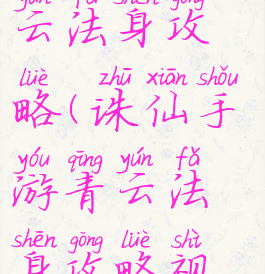 yún fǎ shēn gōng
云法身攻
lüè zhū xiān shǒu
略(诛仙手
yóu qīng yún fǎ
游青云法
shēn gōng lüè shì
身攻略视